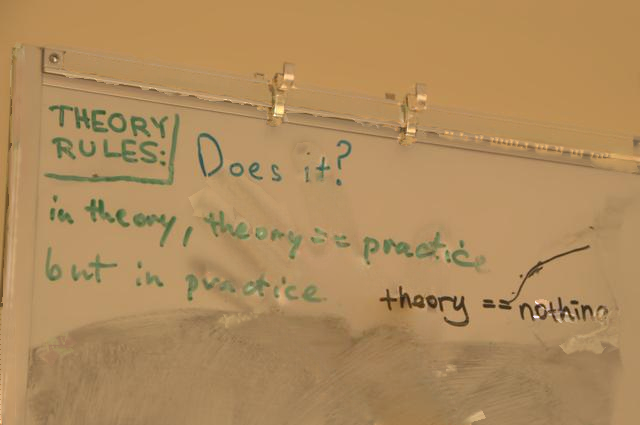 THEORY
RULES:
Does it?
in theory, theory == practice
but in practice
theory == nothing